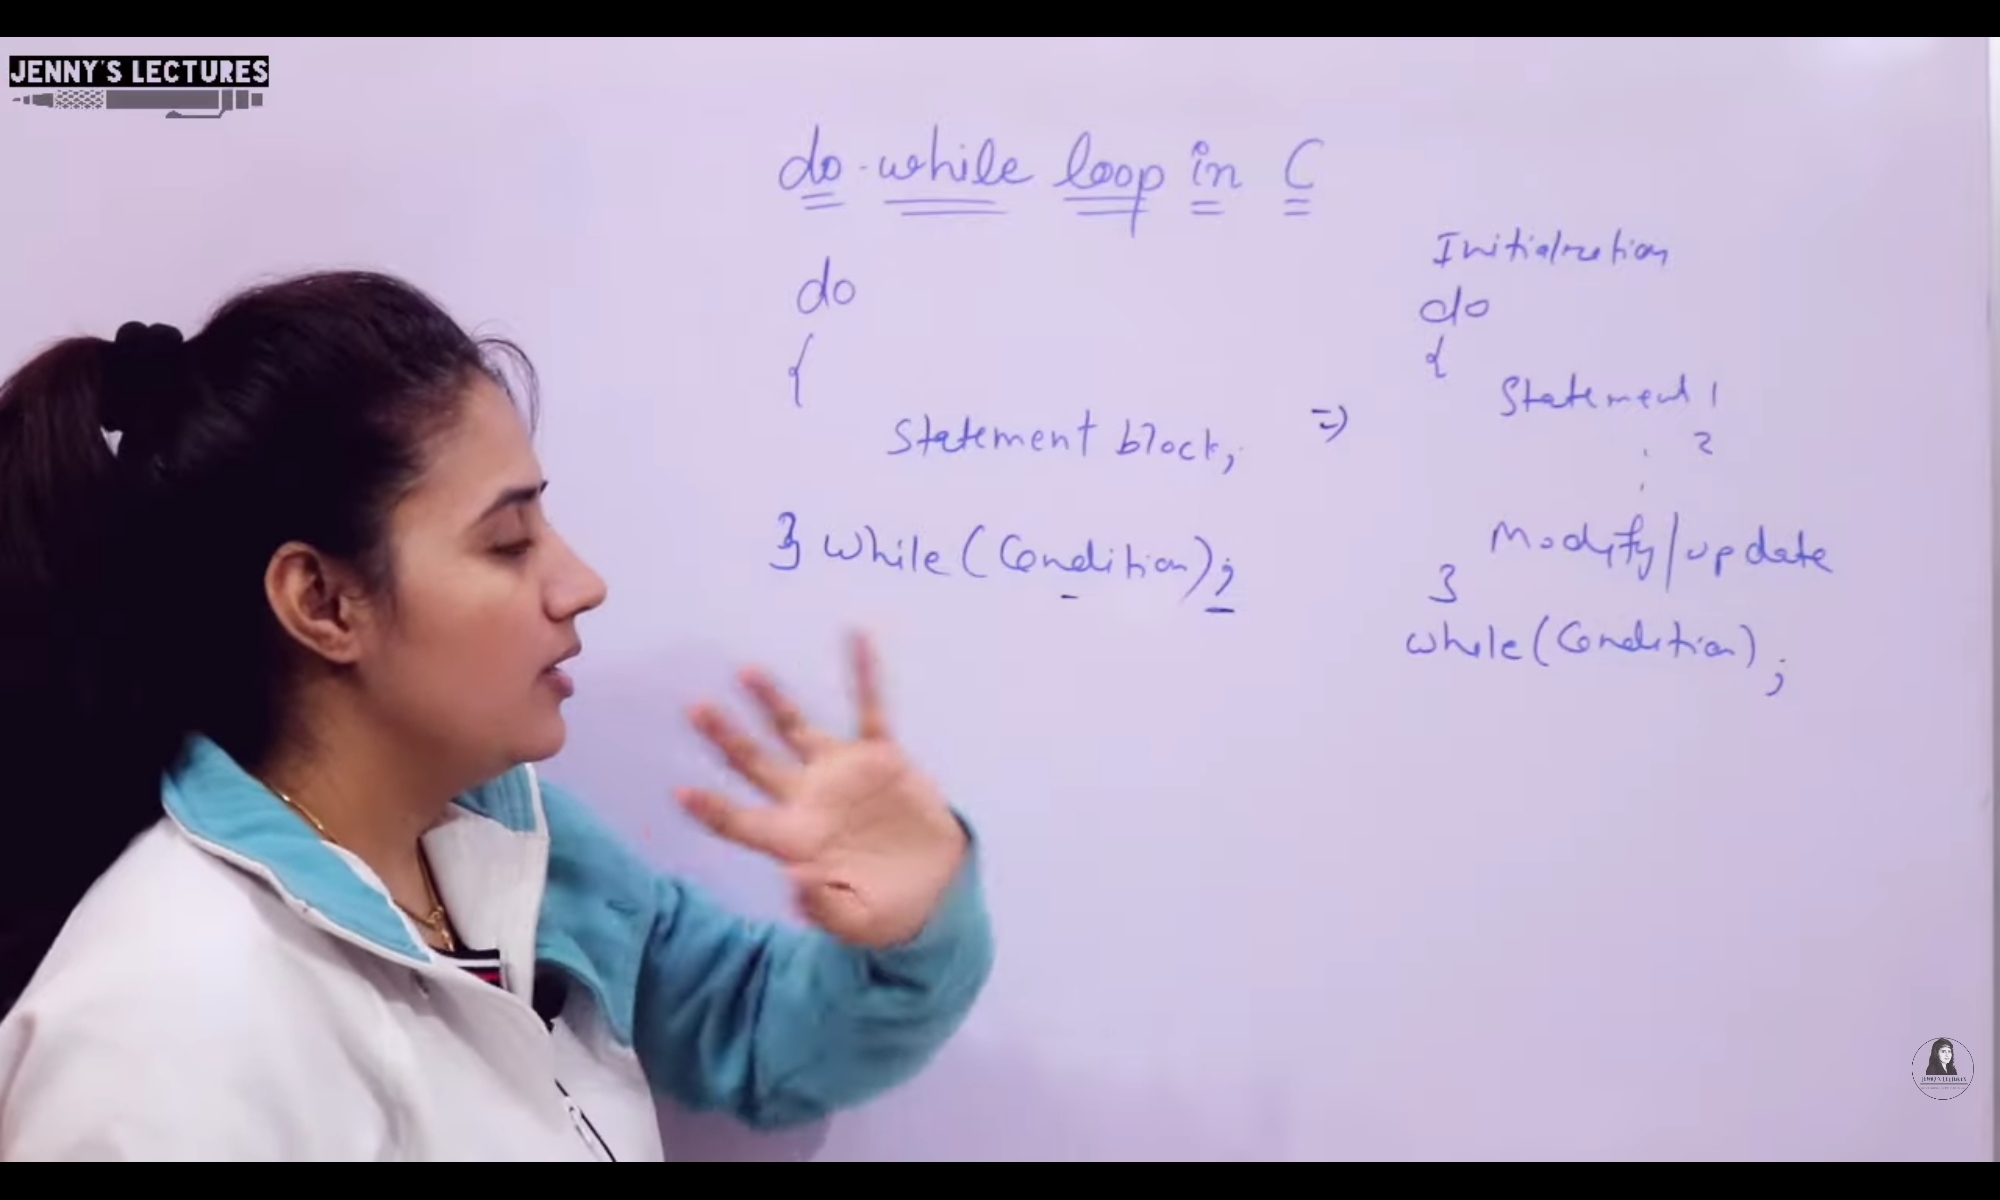 JENNY'S LECTURES
do-while loop in C
do
{
Statement block;
} while (Condition);
=>
Initialization
do
{
Statement 1
2
.
.
Modify/update
}
while (Condition);
JENNY'S LECTURES